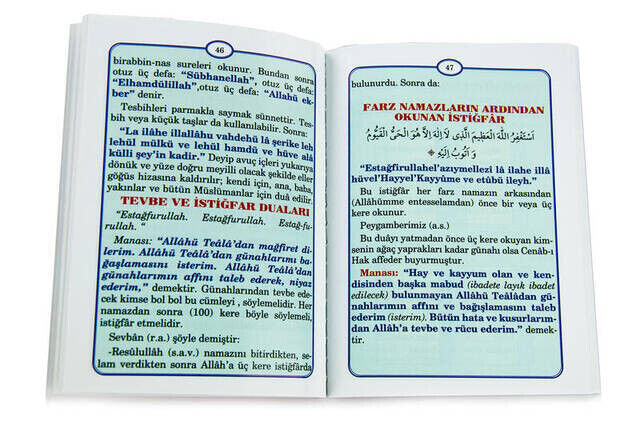 46
birabbin-nas sureleri okunur. Bundan sonra
otuz üç defa: "Sübhanellah", otuz üç defa:
"Elhamdülillah",otuz üç defa: "Allahü ek-
ber" denir.
Tesbihleri parmakla saymak sünnettir. Tes-
bih veya küçük taşlar da kullanılabilir. Sonra:
"La ilahe illallahu vahdehü lâ şerike leh
lehül mülkü ve lehül hamdü ve hüve alâ
külli şey'in kadir." Deyip avuç içleri yukarıya
dönük ve yüze doğru meyilli olacak şekilde eller
göğüs hizasına kaldırılır; kendi için, ana, baba,
yakınlar ve bütün Müslümanlar için dua edilir.
TEVBE VE İSTİĞFAR DUALARI
"Estağfurullah. Estağfurullah. Estağ-fu-
rullah. "
Manası: "Allâhü Teâlâ'dan mağfiret di-
lerim. Allâhü Teâlâ'dan günahlarımı ba-
ğaşlamasını isterim. Allâhü Teâlâ'dan
günahlarımın affını taleb ederek, niyaz
ederim," demektir. Günahlarından tevbe ede-
cek kimse bol bol bu cümleyi , söylemelidir. Her
namazdan sonra (100) kere böyle söylemeli,
istiğfar etmelidir.
Sevbân (r.a.) şöyle demiştir:
-Resûlullâh (s.a.v.) namazını bitirdikten, se-
lam verdikten sonra Allah'a üç kere istiğfârda
47
bulunurdu. Sonra da:
FARZ NAMAZLARIN ARDINDAN
OKUNAN İSTİĞFÂR
اَسْتَغْفِرُ اللهَ الْعَظِيمَ الَّذِى لَا اِلٰهَ اِلاَّ هُوَ الْحَىُّ الْقَيُّومُ
وَ اَتُوبُ اِلَيْهِ
"Estağfirullahel'azıymellezi lâ ilahe illâ
hüvel'Hayyel'Kayyûme ve etûbü ileyh."
Bu istiğfâr her farz namazın arkasından
(Allâhümme entesselamdan) önce bir veya üç
kere okunur.
Peygamberimiz (a.s.)
Bu duâyı yatmadan önce üç kere okuyan kim-
senin ağaç yaprakları kadar günahı olsa Cenâb-ı
Hak affeder buyurmuştur.
Manası: "Hay ve kayyum olan ve ken-
disinden başka mabud (ibadete layık ibadet
edilecek) bulunmayan Allâhü Teâlâdan gü-
nahlarımın affını ve bağışlamasını taleb
ederim (isterim). Bütün hata ve kusurlarım-
dan Allâh'a tevbe ve rücu ederim." demek-
tir.